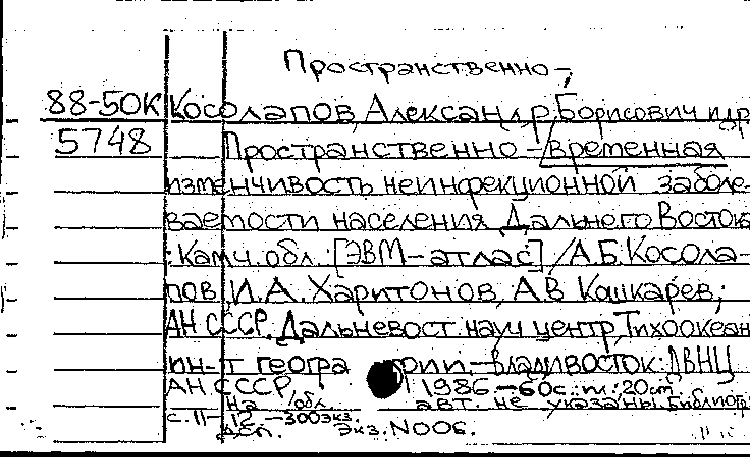 Пространственно-,
88-50К Косолапов, Александр Борисович и др
5748 Пространственно-временная
изменчивость неинфекционной заболе-
ваемости населения Дальнего Восток
: Камч. обл. : [ЭВМ-атлас] / А.Б. Косола-
пов, И.А. Харитонов, А.В. Кошкарев;
АН СССР, Дальневост. науч. центр, Тихоокеан
ин-т геогра - Владивосток: ДВНЦ
АН СССР, 1986 - 60с. ил.: 20см
На /обл. авт. не указаны. Библиогр
с. 11-12 - 300экз.
ДСП. Экз. N006.